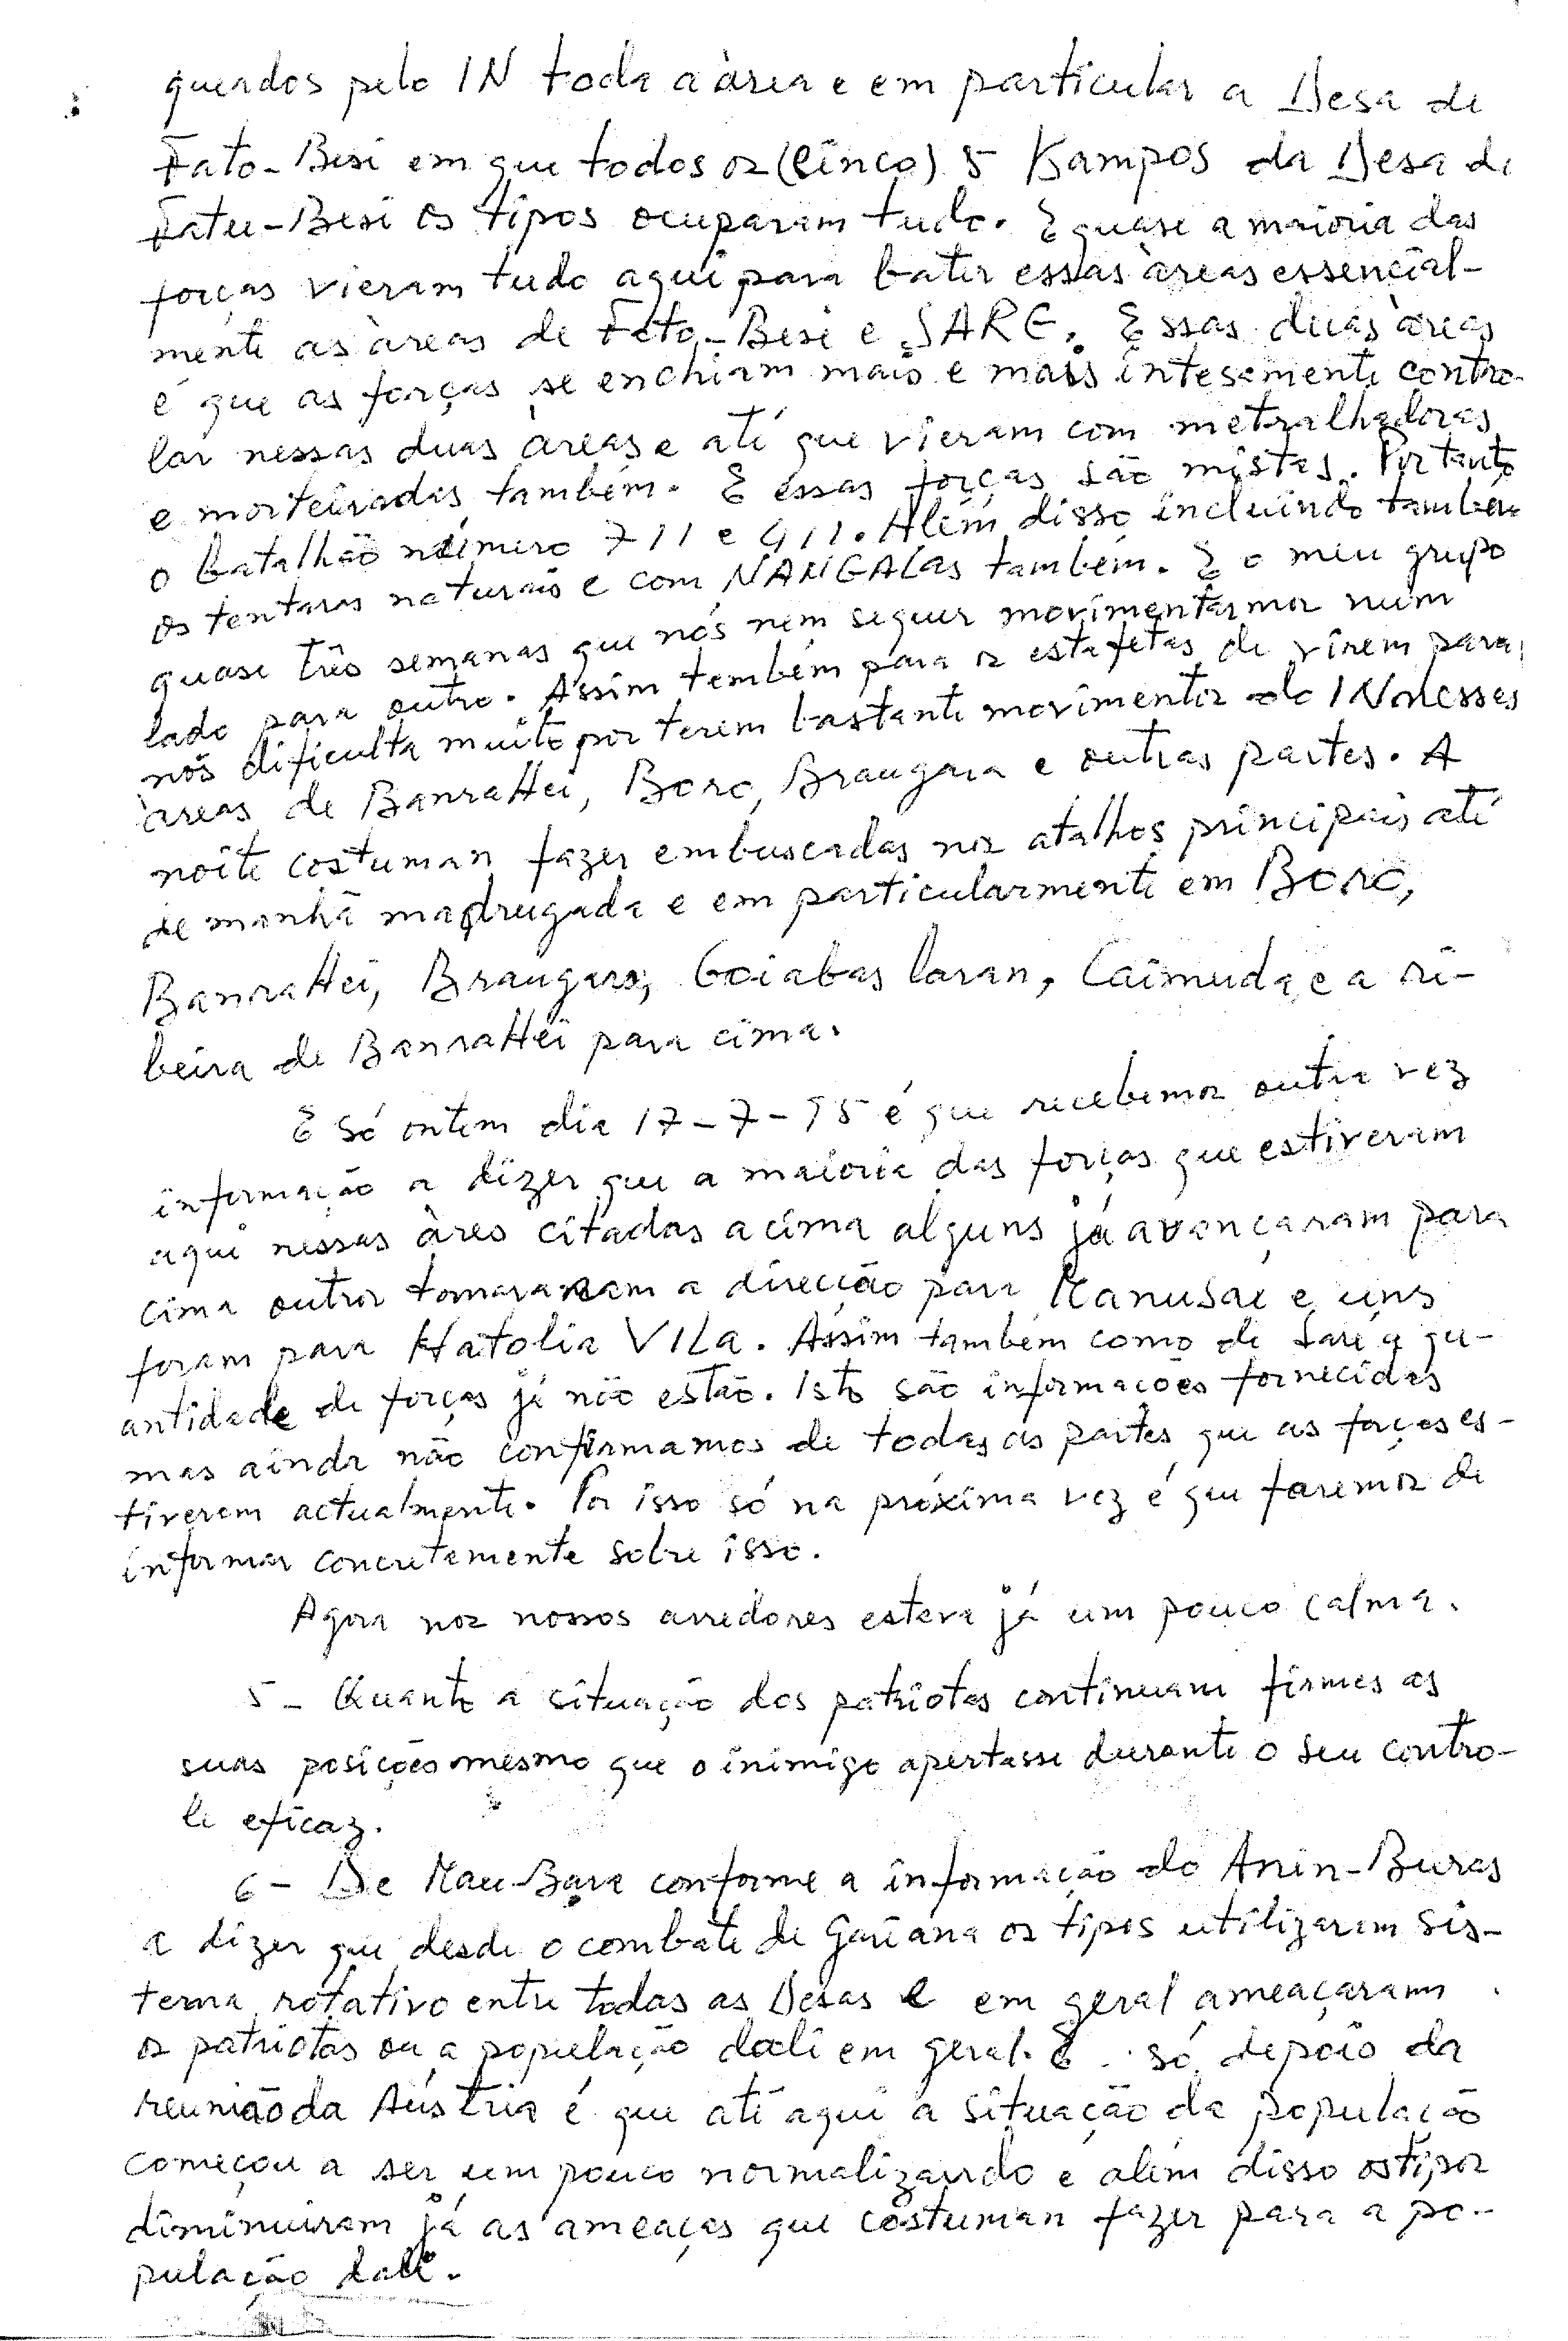 queados pelo IN toda a àrea e em particular a Desa de
Fato-Besi em que todos os (Cinco) 5 Kampos da Desa de
Fatu-Besi os tipos ocuparam tudo. E quase a maioria das
forças vieram tudo aqui para bater essas àreas essencial-
mente as àreas de Fato-Besi e SARE. Essas duas àreas
é que as forças se enchiam mais e mais intesamente contro-
lar nessas duas àreas e até que vieram com metralhadoras
e morteiradas também. E essas forças são mistas. Portanto
o batalhão número 711 e 411. Além disso incluindo também
os tentaras naturais e com NANGALAS também. E o meu grupo
quase três semanas que nós nem sequer movimentarmos num
lado para outro. Assim também para os estafetas de virem para
nós dificulta muito por terem bastante movimentos do IN nesses
àreas de Banrattei, Boro, Braugara e outras partes. A
noite costuman fazer embuscadas nos atalhos principais até
de manhã madrugada e em particularmente em Boro,
Banrattei, Braugara, Goiabas laran, Caimuda, e a ri-
beira de Banrattei para cima.
E só ontem dia 17-7-95 é que recebemos outra vez
informação a dizer que a maioria das forças que estiveram
aqui nessas àres citadas acima alguns já avançaram para
cima outros tomararam a direcção para Manusae e uns
foram para Hatolia VILA. Assim também como de Sare a qu-
antidade de forças já não estão. Isto são informações fornecidas
mas ainda não confirmamos de todas as partes que as forças es-
tiverem actualmente. Por isso só na próxima vez é que faremos de
informar concretamente sobre isso.
Agora nos nossos arredores estava já um pouco calma.
5- Quanto a situação dos patriotas continuam firmes as
suas posições mesmo que o inimigo apertasse durante o seu contro-
le eficaz.
6- De Mau-Bara conforme a informação do Anin-Buras
a dizer que desde o combate de Gariana os tipos utilizaram sis-
tema rotativo entre todas as Desas e em geral ameaçaram
os patriotas ou a população dali em geral. E só depois da
reunião da Austria é que até aqui a situação da população
começou a ser um pouco normalizando e além disso os tipos
diminuiram já as ameaças que costuman fazer para a po-
pulação dali.